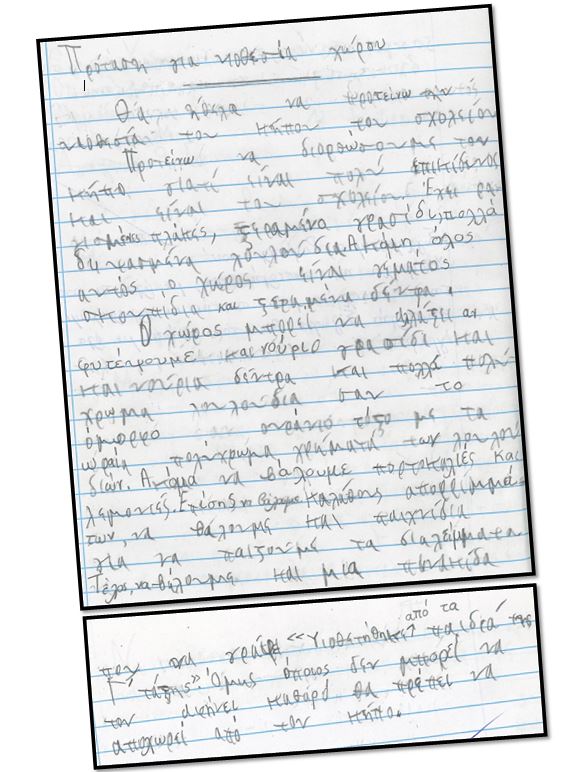 Πρόταση για υιοθεσία χώρου
Θα ήθελα να προτείνω την
υιοθεσία του κήπου του σχολείου
Προτείνω να διορθώσουμε τον
κήπο γιατί είναι πολύ επικίδινος
και είναι του σχολείου. Έχει ρα
γισμένες πλάκες, ξεραμένο γρασίδι, πολλά
διψασμένα λουλούδια. Ακόμη όλος
αυτός ο χώρος είναι γεμάτος
σκουπίδια και ξεραμένα δέντρα.
Ο χώρος μπορεί να αλλάξει αν
φυτέψουμε καινούριο γρασίδι και
καινούρια δέντρα και πολλά πολύ
χρωμα λουλούδια σαν το
όμορφο ουράνιο τόξο με τα
ωραία πολύχρωμα χρώματα των λουλου
διών. Ακόμα να βάλουμε πορτοκαλιές και
λεμονιές. Επίσης να βάλουμε καλάθους απορριμμά
των, να βάλουμε και παιχνίδια
για να παίζουμε τα διαλείμματα.
Τέλος, να βάλουμε και μια πινακίδα
από τα
που να γράφει «Υιοθετήθηκε παιδιά της
Γ΄ τάξης». Όμως όποιος δεν μπορεί να
τον αφήνει καθαρό θα πρέπει να
αποχωρεί από τον κήπο.